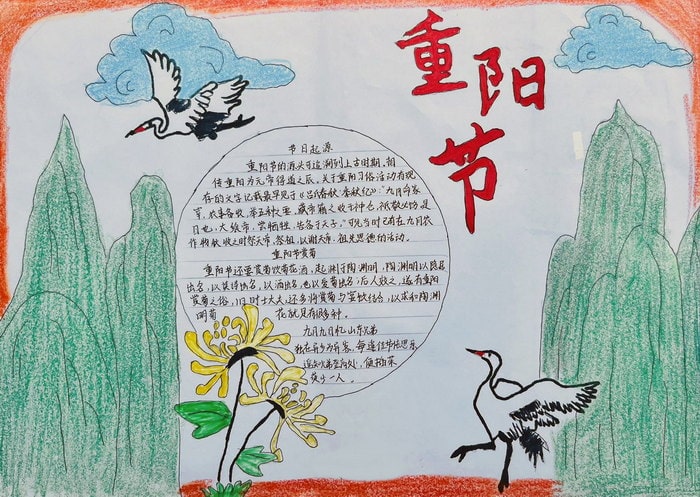 重阳节
节日起源
重阳节的源头可追溯到上古时期,相
传重阳为元帝得道之辰。关于重阳习俗活动有现
存的文字记载最早见于《吕氏春秋·季秋纪》:"九月命家
宰,农事备收,举五种之要。藏帝籍之收于神仓,祗敬必饬是
日也,大飨帝,尝牺牲,告备于天子。"可见当时已有在九月农
作物秋收之时祭天帝、祭祖,以谢天帝、祖先恩德的活动。
重阳节赏菊
重阳节还要赏菊饮菊花酒,起渊于陶渊明,陶渊明以隐居
出名,以诗出名,以酒出名,也以爱菊出名;后人效之,遂有重阳
赏菊之俗,旧时士大人还多将赏菊与宴饮结合,以求和陶渊
明菊花就是有很多种。
九月九日忆山东兄弟
独在异乡为异客,每逢佳节倍思亲。
遥知兄弟登高处,遍插茱
萸少一人。